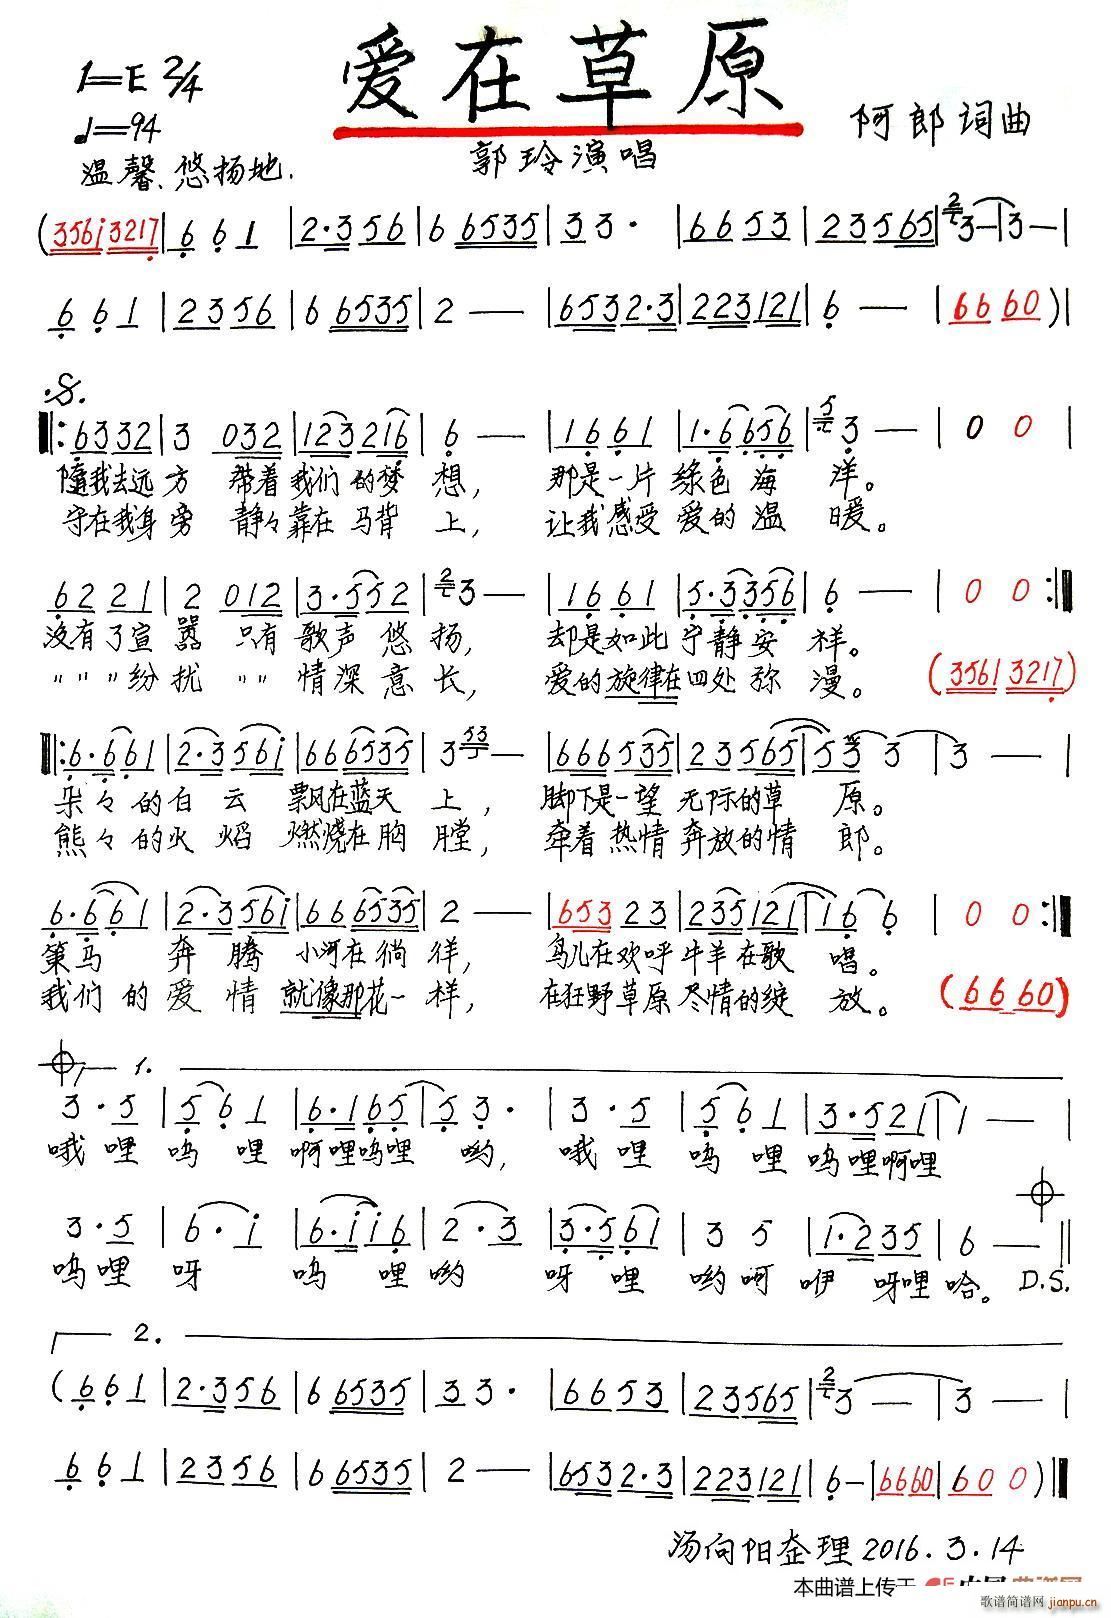 爱在草原
1=E 2/4
♩=94
阿郎词曲
温馨、悠扬地.
郭玲演唱
(356i 3217|6 6 1|2·3 56|6 6535|3 3·|66 53|23565|2 3—|3—|
6 6 1|23 56|6 6535|2 —|6532·3|223121|6 —|66 60)|
𝄋
‖:6332|3 032|123216|6 —|16 61|1·6656|5 3 —|0 0|
随我去远方 带着我们的梦想, 那是一片绿色海洋。
守在我身旁 静々靠在马背上, 让我感受爱的温暖。
62 21|2 012|3·552|2 3—|16 61|5·3356|6 —|0 0:‖
没有了喧嚣 只有歌声悠扬, 却是如此宁静安祥。
〃〃〃纷扰 〃〃情深意长, 爱的旋律在四处弥漫。 (3561 3217)
‖:6·661|2·3 56i|666535|3 53—|666535|23565|53 3|3 —|
朵々的白云 飘在蓝天上, 脚下是一望无际的草原。
熊々的火焰 燃烧在胸膛, 牵着热情奔放的情郎。
6·661|2·3 56i|666535|2 —|653 23|235121|1 6 6|0 0:‖
策马奔腾 小河在徜徉, 鸟儿在欢呼牛羊在歌唱。
我们的爱情 就像那花一样, 在狂野草原尽情的绽放。 (66 60)
1.
3·5|5 6 1|6·165|5 3·|3·5|5 6 1|3·521|1 —|
哦哩呜哩啊哩呜哩哟, 哦哩呜哩呜哩啊哩
3·5|6·i|6·ii6|2·3|3·561|3 5|1·235|6 —‖
呜哩呀 呜哩哟 呀哩哟呵咿呀哩哈。 D.S.
2.
(6 6 1|2·3 56|6 6535|3 3·|66 53|23565|2 3 —|3 —|
6 6 1|23 56|6 6535|2 —|6532·3|223121|6 —|6660|60 0)‖
汤向阳整理2016.3.14
本曲谱上传于
歌谱简谱网
jianpu.cn